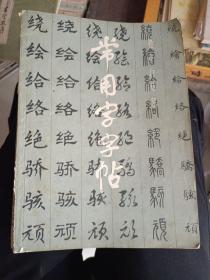 常用字字帖
绕 绕 绕 绕 繞 绕
绘 绘 绘 绘 繪 繪
给 给 给 给 給 给
络 络 络 络 絡 络
绝 绝 绝 绝 絕 绝
骄 骄 骄 骄 驕 骄
骇 骇 骇 骇 駭 骇
顽 顽 顽 顽 頑 顽